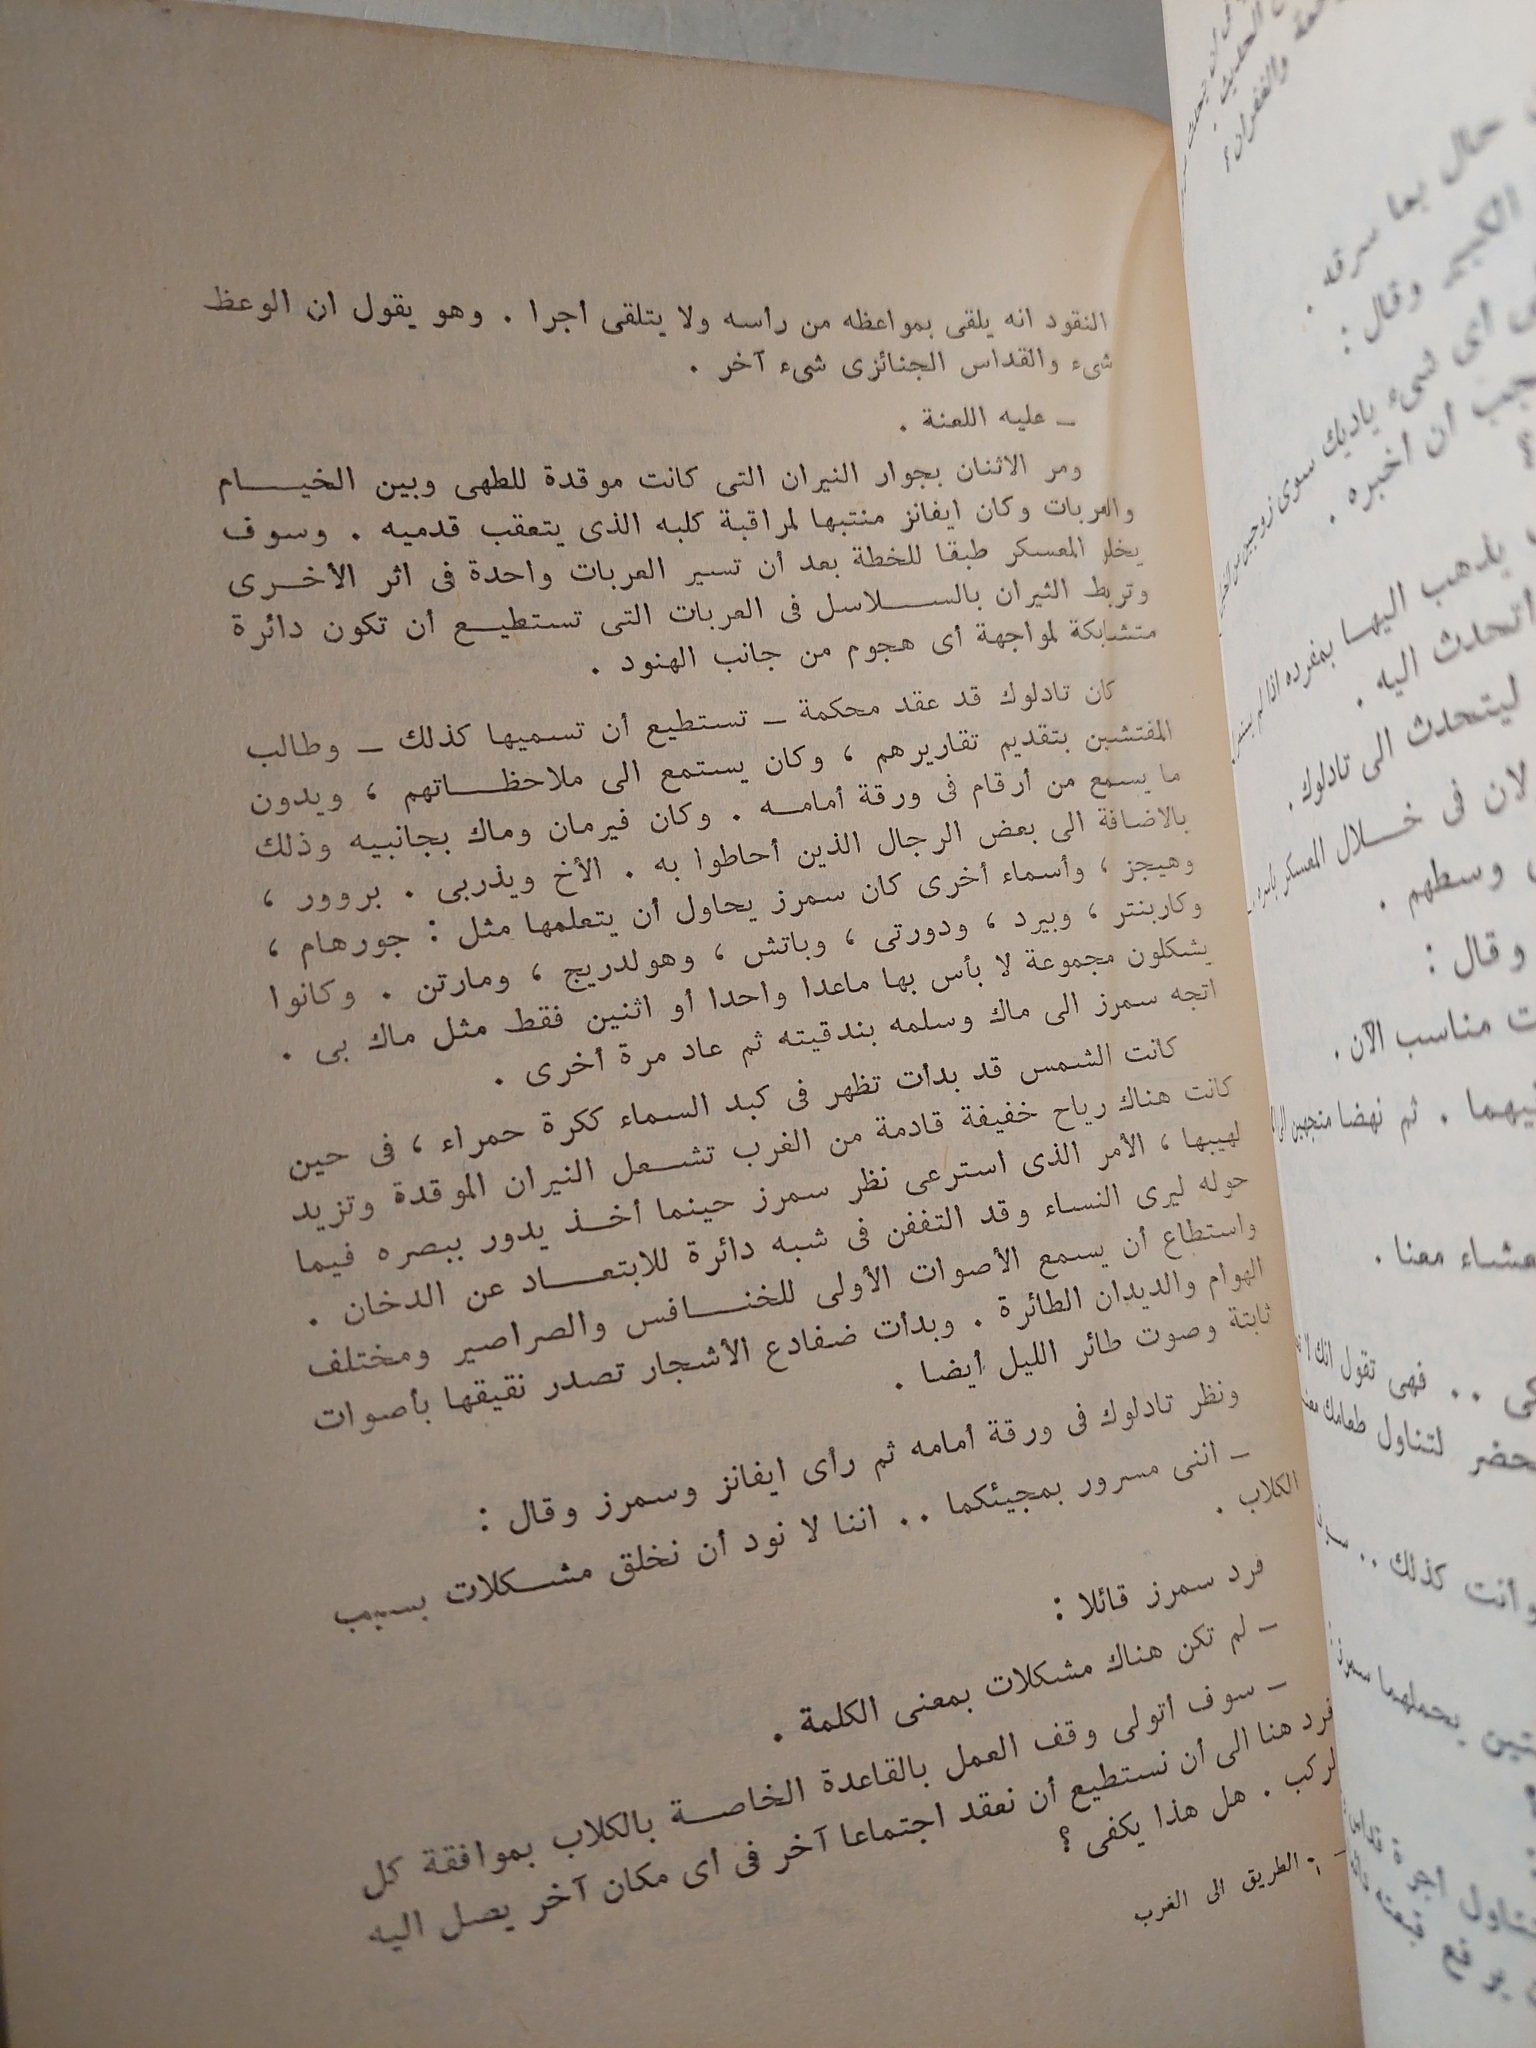 النقود انه يلقى بمواعظه من رأسه ولا يتلقى اجرا . وهو يقول ان الوعظ
شىء والقداس الجنائزى شىء آخر .
ـ عليه اللعنة .
ومر الاثنان بجوار النيران التى كانت موقدة للطهى وبين الخيـــام
والعربات وكان ايفانز منتبها لمراقبة كلبه الذى يتعقب قدميه . وسوف
المعسكر طبقا للخطة بعد أن تسير العربات واحدة فى اثر الأخــرى
وتربط الثيران بالســـلاسل فى العربات التى تستطيــع أن تكون دائرة
متشابكة لمواجهة أى هجوم من جانب الهنود .
كان تادلوك قد عقد محكمة ـ تستطيع أن تسميها كذلك ـ وطالب
المفتشين بتقديم تقاريرهم ، وكان يستمع الى ملاحظـــاتهم ، ويدون
ما يسمع من أرقام فى ورقة أمامــه . وكان فيرمان وماك بجانبيه وذلك
بالاضافة الى بعض الرجال الذين أحاطوا به . الأخ ويذربى . بروور ،
وهيجز ، وأسماء أخرى كان سمرز يحاول أن يتعلمها مثل : جورهام ،
وكاربنتر ، وبيرد ، ودورتى ، وباتش ، وهولدريج ، ومارتن . وكانوا
يشكلون مجموعة لا بأس بها ماعدا واحدا أو اثنين فقط مثل ماك بى .
اتجه سمرز الى ماك وسلمه بندقيته ثم عاد مرة أخرى .
كانت الشمس قد بدأت تظهر فى كبد السماء ككرة حمراء ، فى حين
كانت هناك رياح خفيفة قادمة من الغرب تشــعل النيران الموقدة وتزيد
لهيبها ، الأمر الذى استرعى نظر سمرز حينما أخــذ يدور ببصره فيما
حوله ليرى النساء وقد التففن فى شبه دائرة للابتعـــاد عن الدخان .
واستطاع أن يسمع الأصوات الأولى للخنـــافس والصراصير ومختلف
الهوام والديدان الطائرة . وبدأت ضفادع الأشجار تصدر نقيقها بأصوات
ثابتة وصوت طائر الليل أيضا .
ونظر تادلوك فى ورقة أمامه ثم رأى ايفانز وسمرز وقال :
ـ اننى مسرور بمجيئكما .. اننا لا نود أن نخلق مشــكلات بسبب
الكلاب .
فرد سمرز قائلا :
ـ لم تكن هناك مشكلات بمعنى الكلمة .
ـ سوف أتولى وقف العمل بالقاعدة الخاصــة بالكلاب بموافقة كل
فرد هنا الى أن نستطيع أن نعقد اجتماعا آخر فى أى مكان آخر يصل اليه
الركب . هل هذا يكفى ؟
الطريق الى الغرب
حال بما سرقه .
وقال :
أى شىء ياديك سوى زوجين من
أن أخبره .
يذهب اليهـا بمفرده اذا لم
أتحدث اليه .
ليتحدث الى تادلوك .
فى خــلال المعسكر
وسطهم .
وقال :
مناسب الآن .
ثم نهضا متجهين
معنا .
فهى تقول انك لا
لتناول طعامك
وأنت كذلك ..